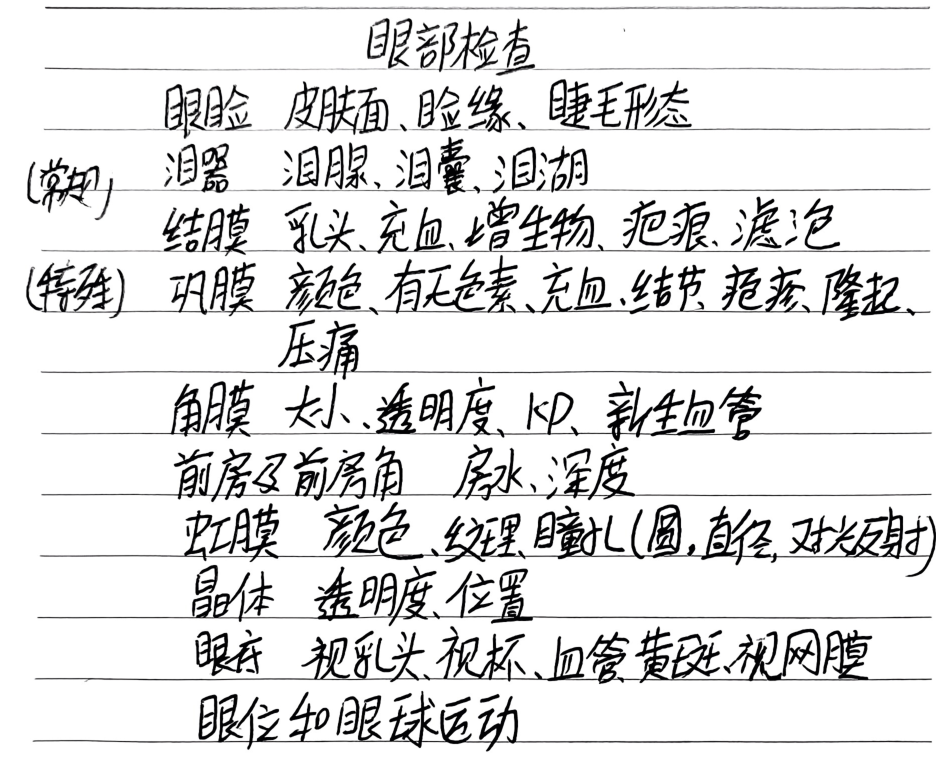 眼部检查
眼睑 皮肤面、睑缘、睫毛形态
(常规) 泪器 泪腺、泪囊、泪湖
结膜 乳头、充血、增生物、疤痕、滤泡
(特殊) 巩膜 颜色、有无色素、充血、结节、疱疹、隆起、
压痛
角膜 大小、透明度、KP、新生血管
前房及前房角 房水、深度
虹膜 颜色、纹理、瞳孔(圆,直径,对光反射)
晶体 透明度、位置
眼底 视乳头、视杯、血管、黄斑、视网膜
眼位和眼球运动